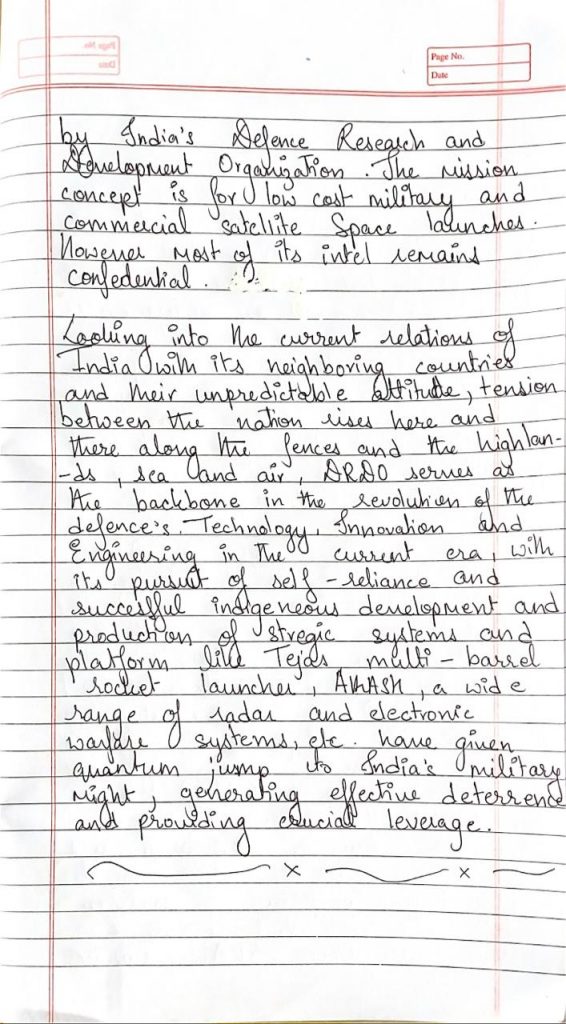 Page No.
Date
by India's Defence Research and
Development Organization. The mission
concept is for low cost military and
commercial satellite Space launches.
However most of its intel remains
confedential.
Looking into the current relations of
India with its neighboring countries
and their unpredictable attitude, tension
between the nation rises here and
there along the fences and the highlan-
-ds, sea and air, DRDO serves as
the backbone in the revolution of the
defence's Technology, Innovation and
Engineering in the current era, with
its pursuit of self-reliance and
successful indigeneous development and
production of stregic systems and
platform like Tejas multi-barrel
rocket launcher, AKASH, a wide
range of radar and electronic
warfare systems, etc. have given
quantum jump to India's military
might, generating effective deterrence
and providing crucial leverage.